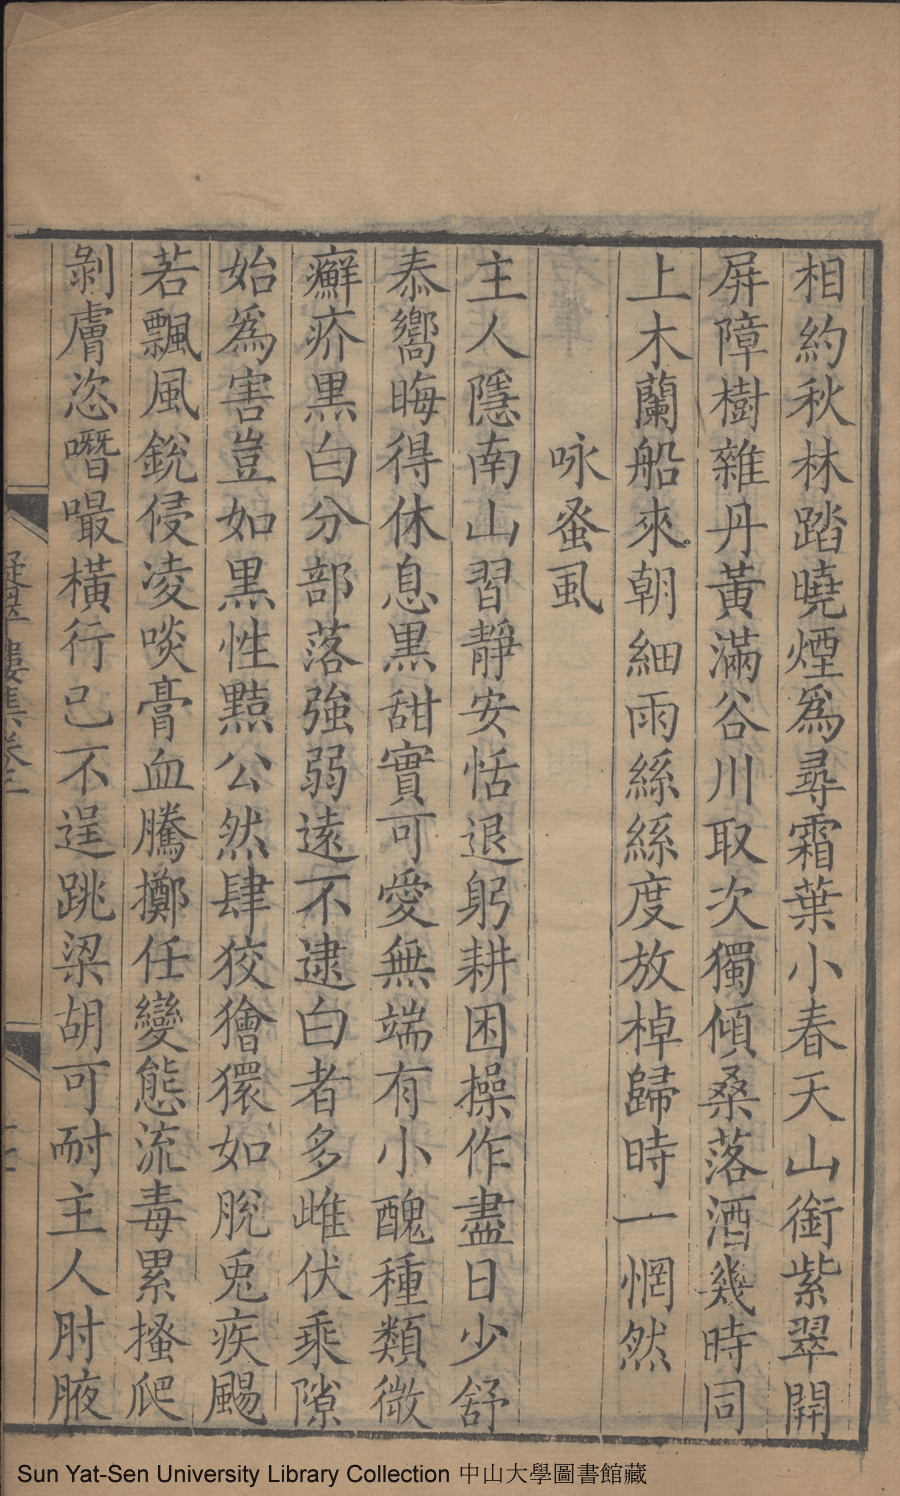 相約秋林踏曉煙爲尋霜葉小春天山銜紫翠開
屏障樹雜丹黃滿谷川取次獨傾桑落酒幾時同
上木蘭船來朝細雨絲絲度放棹歸時一惘然
咏蚤虱
主人隱南山習靜安恬退躬耕困操作盡日少舒
泰嚮晦得休息黑甜實可愛無端有小醜種類微
癬疥黑白分部落強弱遠不逮白者多雌伏乘隙
始爲害豈如黑性黠公然肆狡獪獧如脫兎疾颺
若飄風銳侵凌啖膏血騰擲任變態流毒累搔爬
剝膚恣噆嘬橫行已不逞跳梁胡可耐主人肘腋
凝翠樓集卷三
Sun Yat-Sen University Library Collection 中山大學圖書館藏